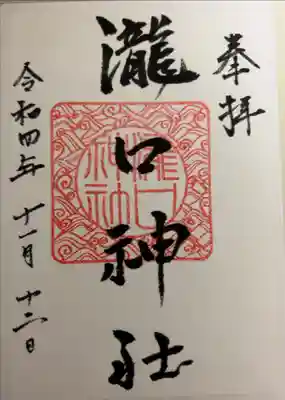 奉拝
瀧口神社
令和四年 十一月 十二日
瀧口神社